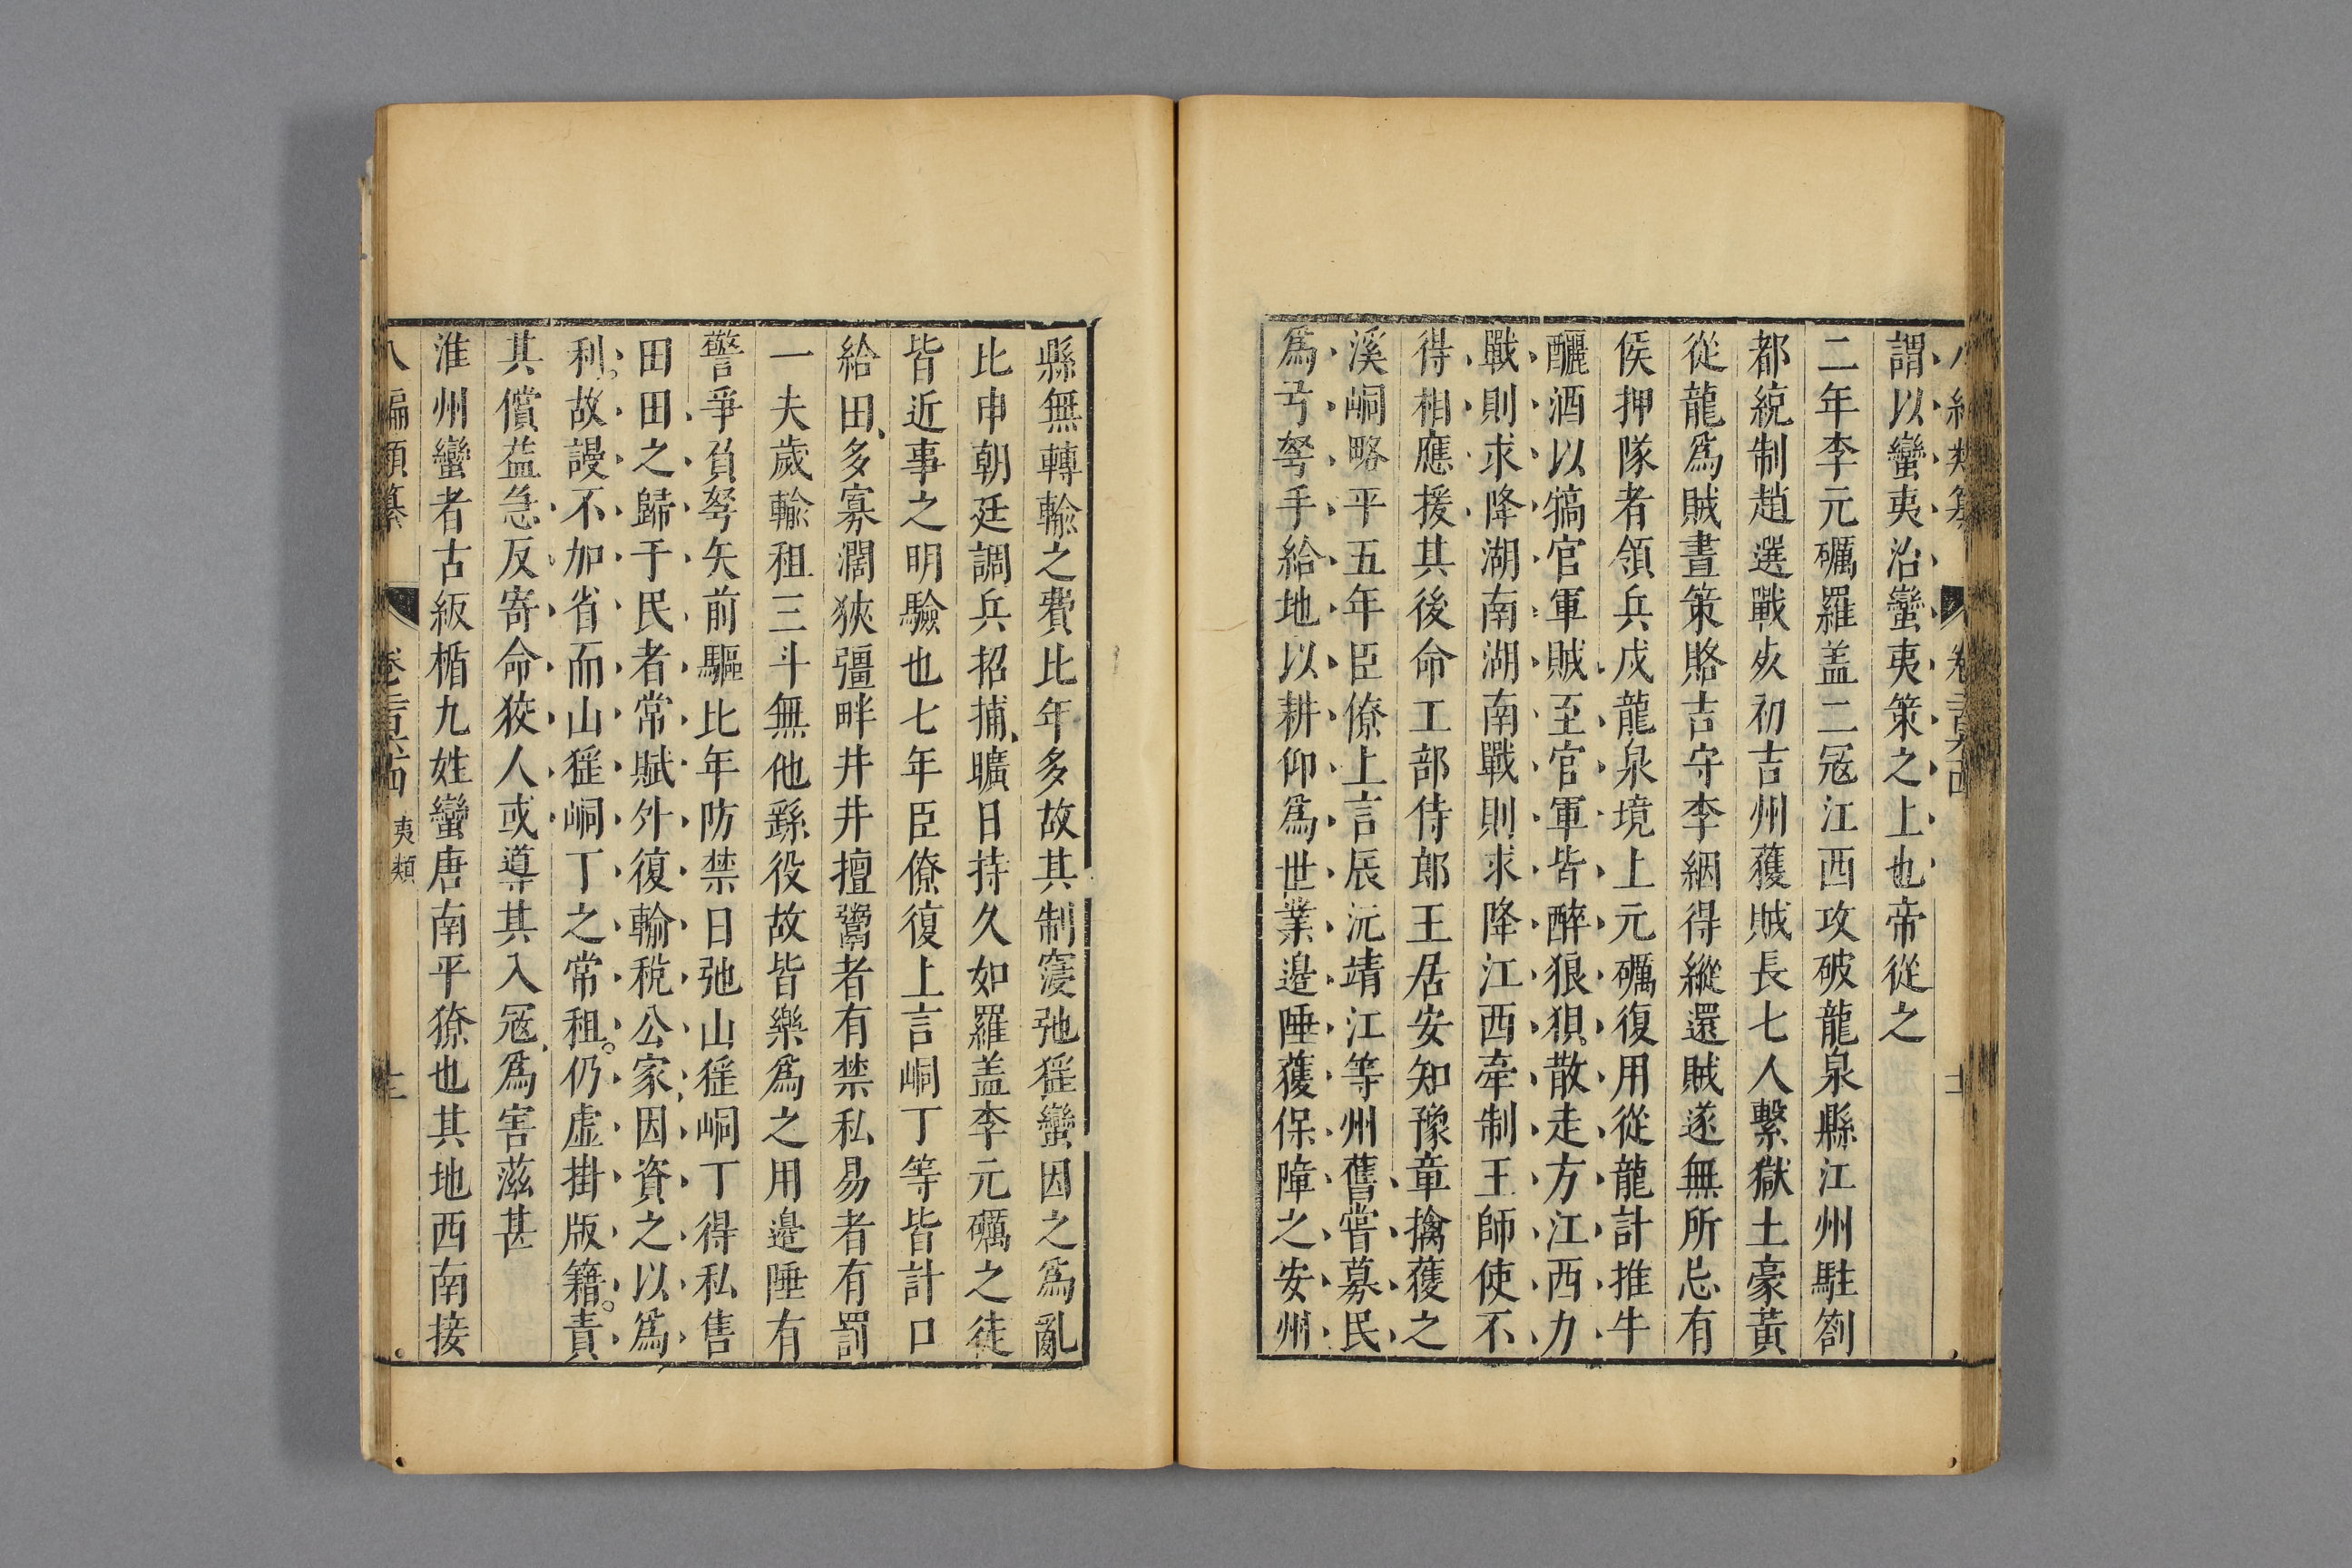 謂以蠻夷治蠻夷策之上也帝從之
二年李元礪羅盖二冦江西攻破龍泉縣江州駐劄
都統制趙選戰歿初吉州獲賊長七人繫獄土豪黃
從龍爲賊晝策賂吉守李綱得縱還賊遂無所忌有
侯押隊者領兵戍龍泉境上元礪復用從龍計推牛
釃酒以犒官軍賊至官軍皆醉狼狽散走方江西力
戰則求降湖南湖南戰則求降江西牽制王師使不
得相應援其後命工部侍郎王居安知豫章擒獲之
溪峒略平五年臣僚上言辰沅靖江等州舊嘗募民
爲弓弩手給地以耕仰爲世業邊陲獲保障之安州
縣無轉輸之費比年多故其制寖弛猺蠻因之爲亂
比申朝廷調兵招捕曠日持久如羅盖李元礪之徒
皆近事之明驗也七年臣僚復上言峒丁等皆計口
給田多寡濶狹彊畔井井擅鬻者有禁私易者有罰
一夫歲輸租三斗無他繇役故皆樂爲之用邊陲有
警爭負弩矢前驅比年防禁日弛山猺峒丁得私售
田田之歸于民者常賦外復輸稅公家因資之以爲
利故謾不加省而山猺峒丁之常租仍虛掛版籍責
其償益急反寄命狡人或導其入冦爲害滋甚
淮州蠻者古䘕楯九姓蠻唐南平獠也其地西南接
八編類纂 夷類